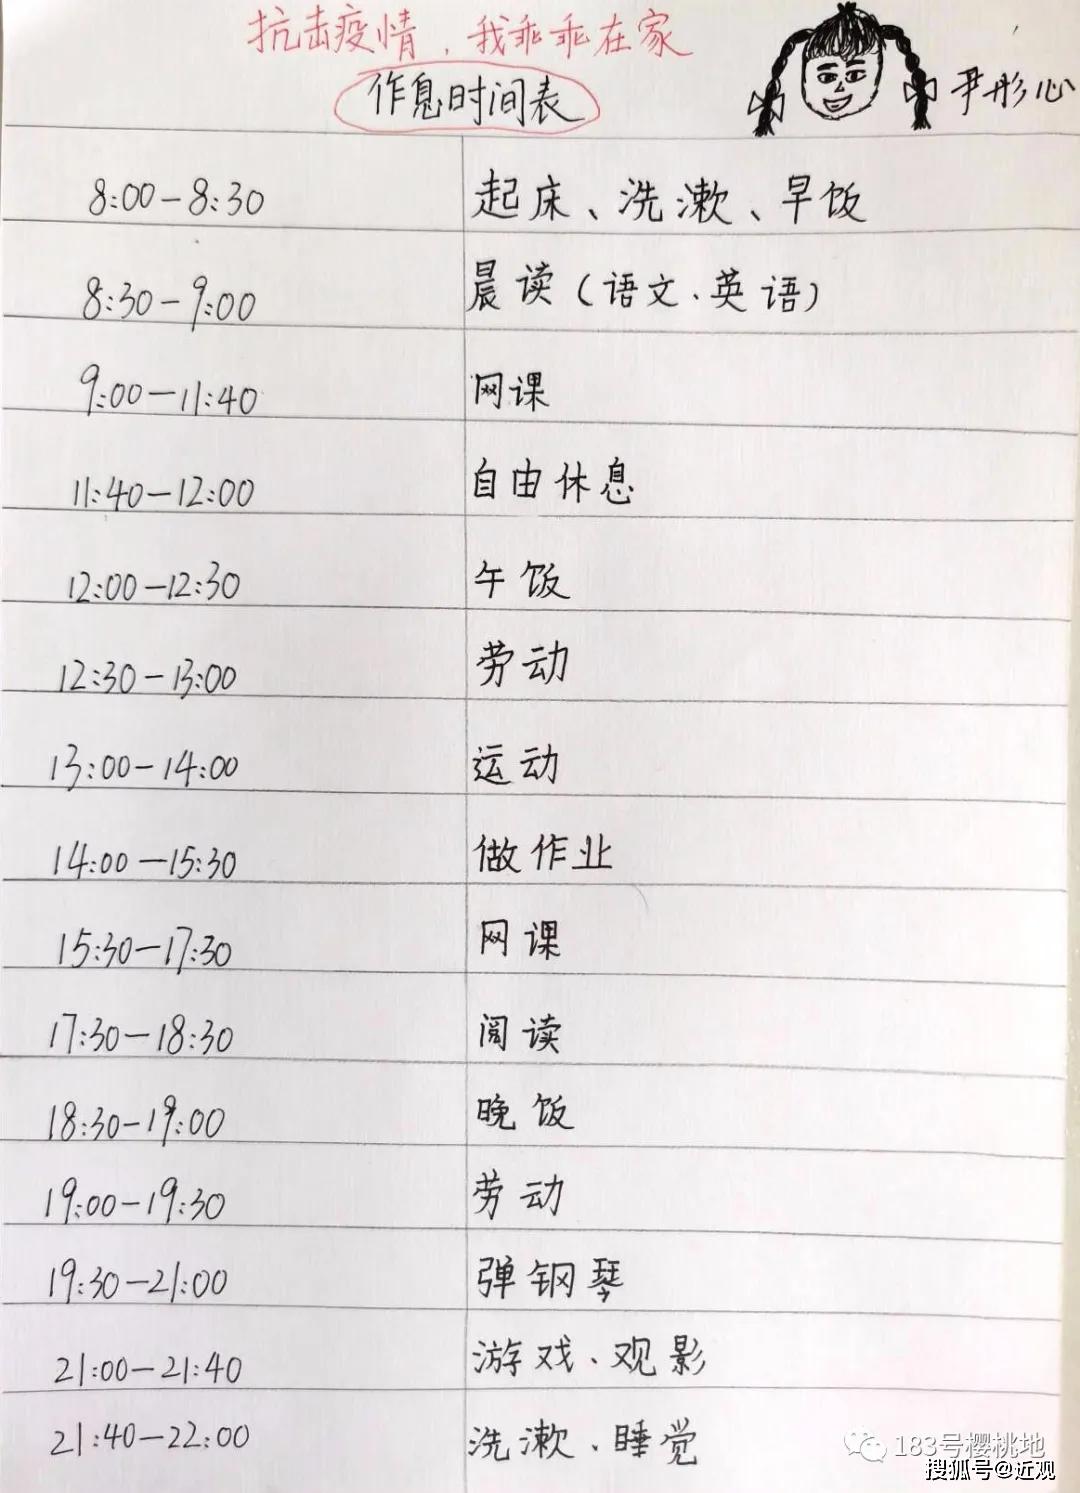 抗击疫情,我乖乖在家
作息时间表
尹彤心
8:00-8:30 起床、洗漱、早饭
8:30-9:00 晨读(语文、英语)
9:00-11:40 网课
11:40-12:00 自由休息
12:00-12:30 午饭
12:30-13:00 劳动
13:00-14:00 运动
14:00-15:30 做作业
15:30-17:30 网课
17:30-18:30 阅读
18:30-19:00 晚饭
19:00-19:30 劳动
19:30-21:00 弹钢琴
21:00-21:40 游戏、观影
21:40-22:00 洗漱、睡觉
183号樱桃地
搜狐号@近观